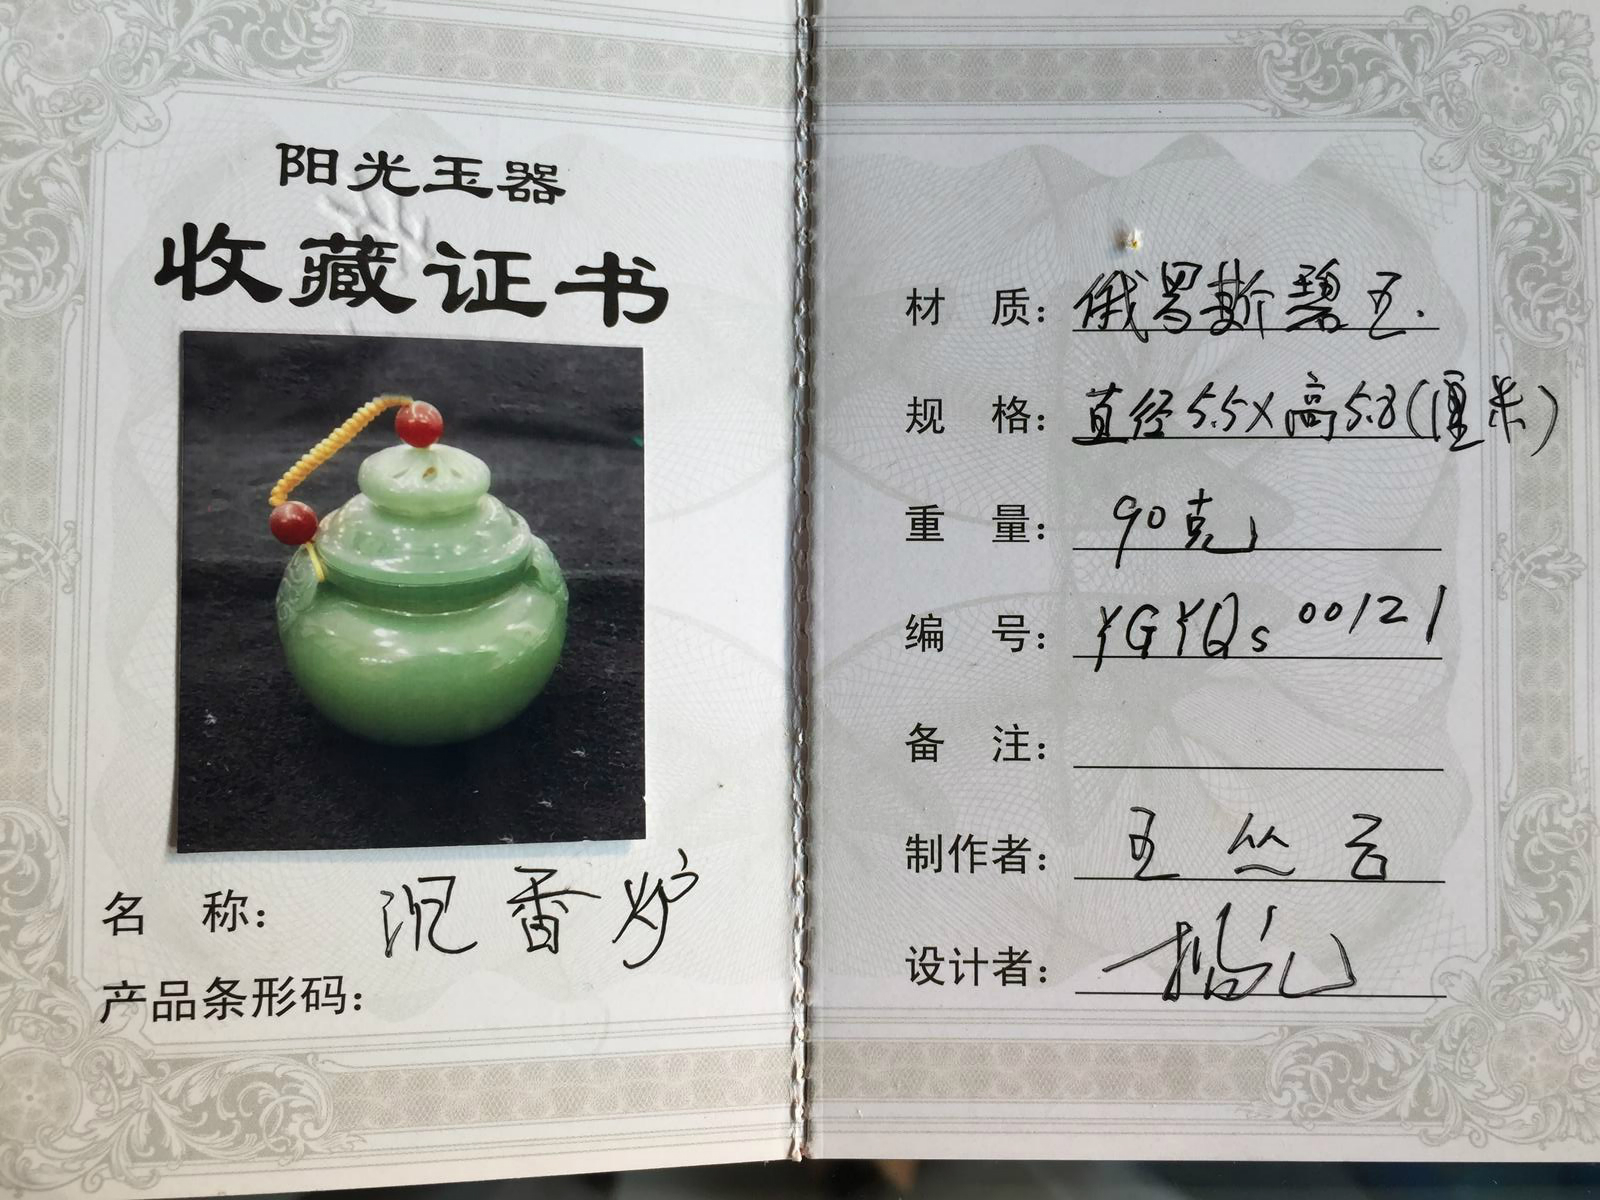 阳光玉器
收藏证书
名 称： 沉香炉
产品条形码：
材 质： 俄罗斯碧玉.
规 格： 直径5.5X高5.8(厘米)
重 量： 90克
编 号： YGYQs 00121
备 注：
制作者： 王丛云
设计者：